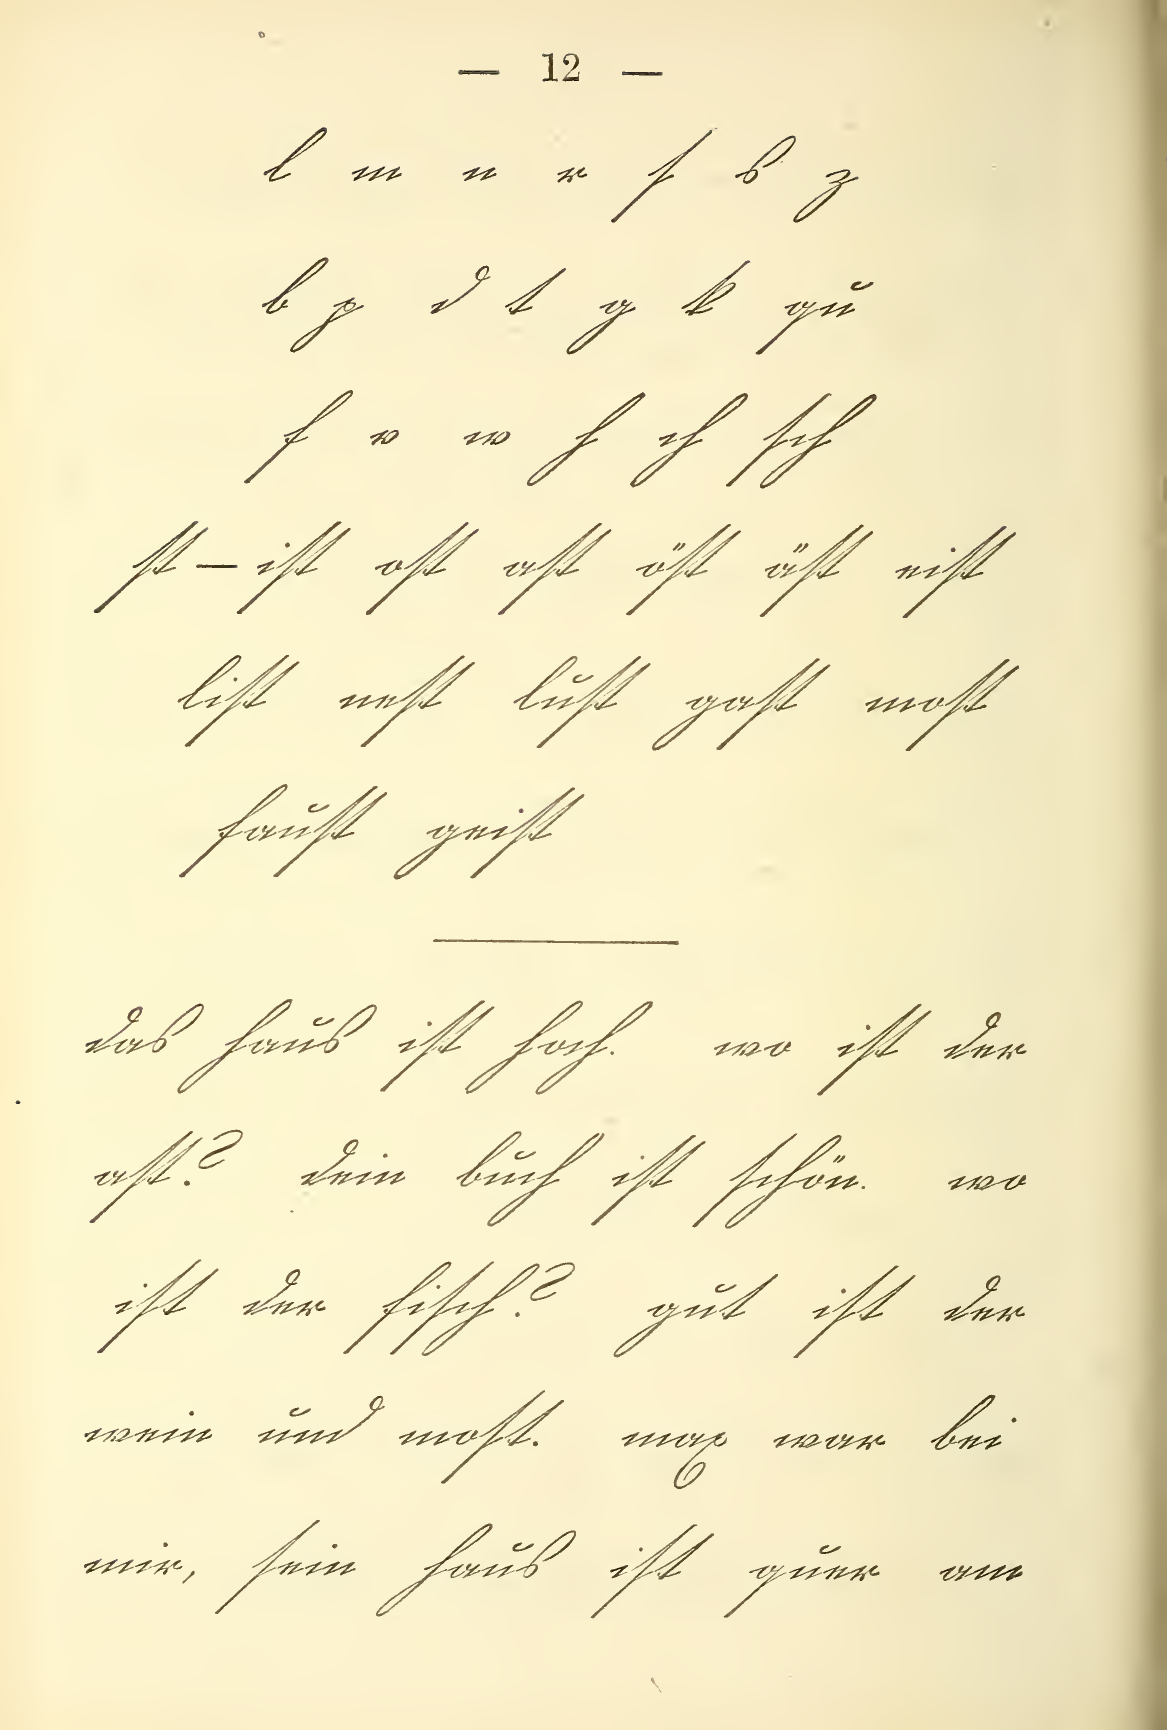 — 12 —
l m n r ſ s z
b p d t g k qu
f v w h ch ſch
ſt — iſt oſt aſt öſt äſt eiſt
liſt neſt luſt gaſt moſt
fauſt geiſt
das haus iſt hoch. wo iſt der
aſt? dein buch iſt ſchön. wo
iſt der fiſch? gut iſt der
wein und moſt. max war bei
mir, ſein haus iſt quer am